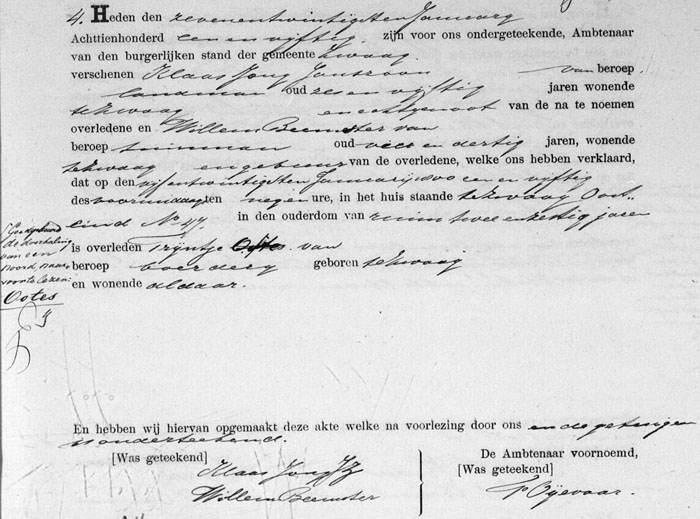 4. Heden den zevenentwintigsten Januarij
Achttienhonderd een en vijftig zijn voor ons ondergeteekende, Ambtenaar
van den burgerlijken stand der gemeente Zwaag
verschenen Klaas Jong Janszoon van beroep
landman oud zes en vijftig jaren wonende
te Zwaag en echtgenoot van de na te noemen
overledene en Willem Beemster van
beroep tuinman oud dertig jaren, wonende
te Zwaag en gebuur van de overledene, welke ons hebben verklaard,
dat op den vijfentwintigsten Januarij 1800 een en vijftig
des voormiddags ten negen ure, in het huis staande te Zwaag Oost-
eind No 47 in den ouderdom van ruim twee en jaren
is overleden Trijntje Ootes van
beroep boerderij geboren te Zwaag
en wonende aldaar.
Goedgekeurd
de doorhaling
van een
woord, naar
voor te lezen:
Ootes
En hebben wij hiervan opgemaakt deze akte welke na voorlezing door ons en de getuigen
is onderteekend.
[Was geteekend] De Ambtenaar voornoemd,
Klaas Jong Jz [Was geteekend]
Willem Beemster P Oijevaar.